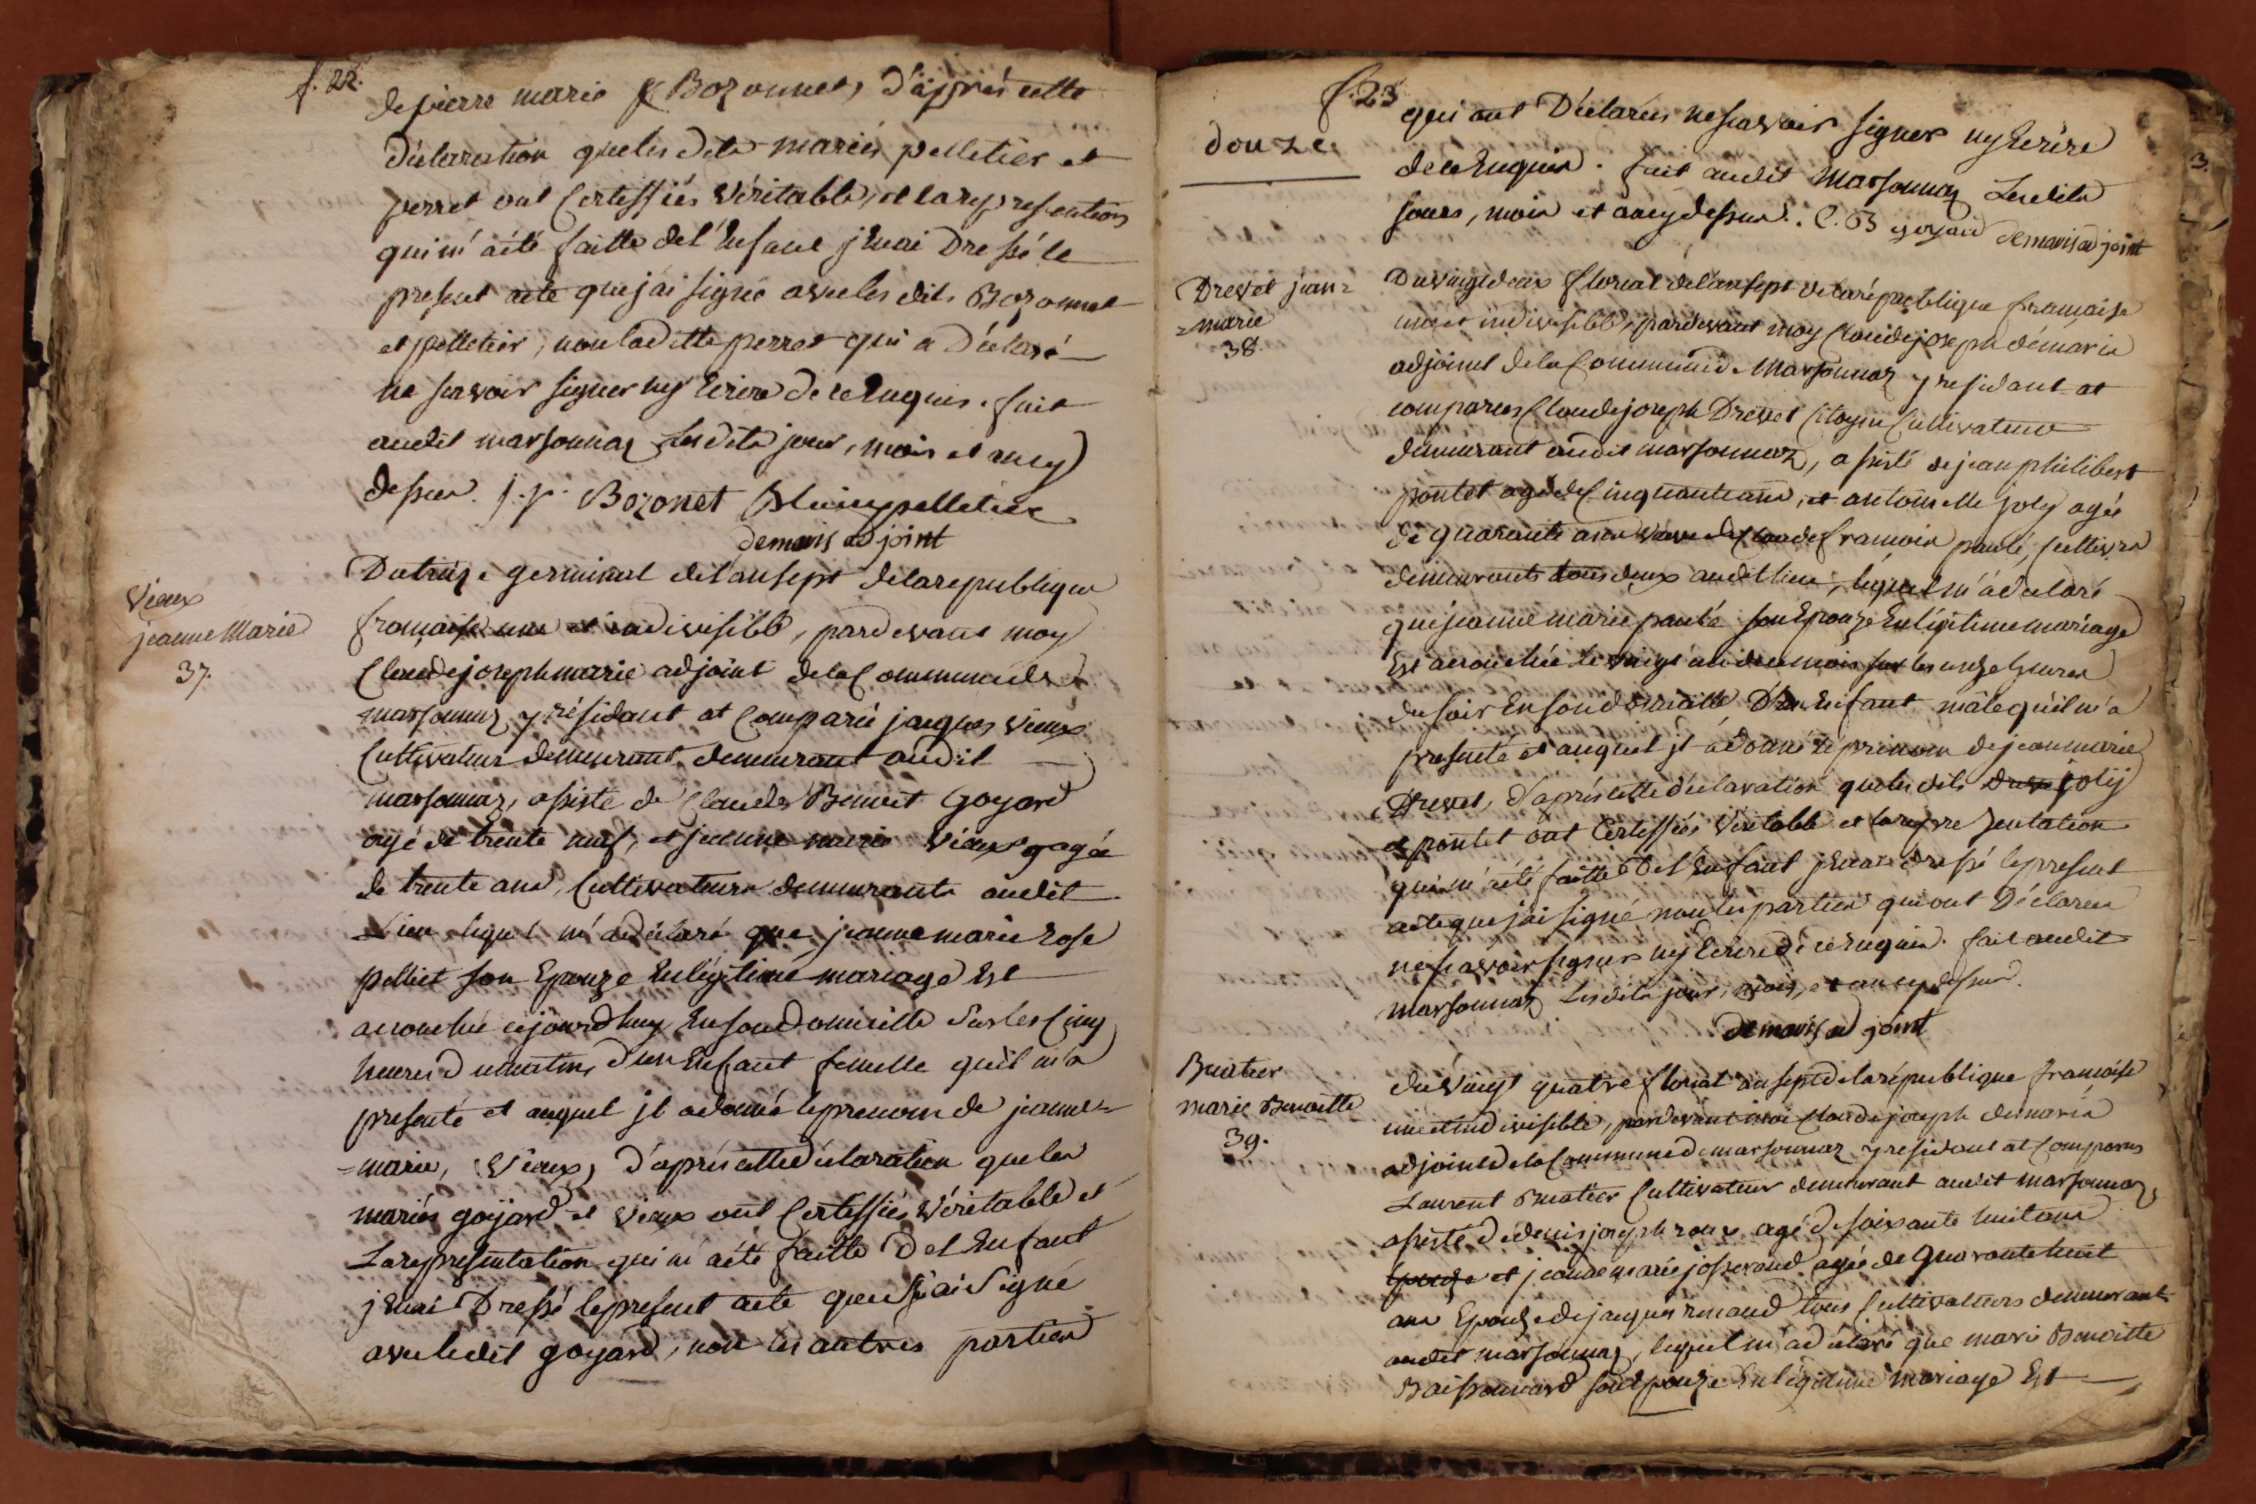 f. 22.
de pierre marie Bozonnet, d'apprés cette
déclaration que les dits mariés, pelletier et
perret ont Certeffiés Véritable, et la representation
qui m'a été faitte de l'Enfant j'Enai Dressé le
present acte que jai signé avec les dits Bozonnet
et pelletier, non laditte perret qui a Déclaré
ne scavoir signer ny Ecrire de ce Enquis. fait
audit marsonnaz Lesdits jour, mois et an cy
dessus. j. p. Bozonet pelletier
demaris adjoint
Vieux
jeanne Marie
37.
Du treize germinal de l'an sept de la republique
française une et indivisible, pardevant moy
Claude joseph marie adjoint de la Commune de
marsonnaz y résidant at Comparü jacques Vieux
Cultivateur demeurant demeurant audit
marsonnaz, assisté de Claude Benoit Goyard
agé de trente neuf, et jeanne marie Vieux agée
de trente ans, Cultivateurs demeurants audit
Lieu lequel m'a déclaré que jeanne marie Rose
pelliet son Epouze En légitime mariage Est
accouchée cejourdhuy En son domicille Sur les Cinq
heures du matin, d'un Enfant femelle qu'il m'a
presenté et auquel jl a donné le prenom de jeanne=
=marie, Vieux, d'aprés cette déclaration que les
mariés goyard et Vieux ont Certeffiés Véritable et
La representation qui m'a été faitte de l'Enfant
j'Enai Dressé le present acte que jai Signé
avec ledit goyard, non les autres parties
f. 23
douze
qui ont Déclarés ne scavoir signer ny Ecrire
de ce Enquis. fait audit Marsonnaz Lesdits
jours, mois et an cy dessus. C. B goyard demaris adjoint
3.
Drevet jean=
=marie
38.
Du vingt deux floreal de l'an sept de la république française
une et indivisible, pardevant moy Claude joseph démaris
adjoint de la Commune de Marsonnaz y residant at
comparus Claude joseph Drevet Citoyen Cultivateur
demeurant audit marsonnaz, assisté de jean philibert
pontet agé de Cinquante ans, et antoinette joly agée
de quarante ans veuve de Claude françois panté, Cultivrs
demeurants tous deux audit lieu, lequel m'a déclaré
que jeanne marie panté son Epouze En légitime mariage
Est accouchée le vingt un du mois sur les onze heures
du soir En son domicille D'un Enfant mâle qu'il m'a
presenté et auquel jl a donné le prenom de jean marie
Drevet, d'aprés cette déclaration que les dits joly
et pontet ont Certeffiés Véritable et la representation
qui m'a été faitte de l'Enfant j'Enai dressé le present
acte que jai signé non les parties qui ont Déclarés
ne scavoir signer ny Ecrire de ce Enquis. fait audit
marsonnaz Lesdits jour, mois, et an cy dessus.
demaris adjoint
Buatier
marie Benoitte
39.
du vingt quatre floreal an sept de la république française
une et indivisible, pardevant moi Claude joseph demaris
adjoint de la Commune de marsonnaz y residant at Comparus
Laurent Buatier Cultivateur demeurant audit marsonnaz,
assisté de denis joseph roux agé de soixante huit ans
Epouze et jeanne marie josserand agée de quarante huit
ans Epouze de jacques renaud tous Cultivateurs demeurant
audit marsonnaz, lequel m'a déclaré que marie Benoitte
Baissonnard son Epouze En légitime mariage Est